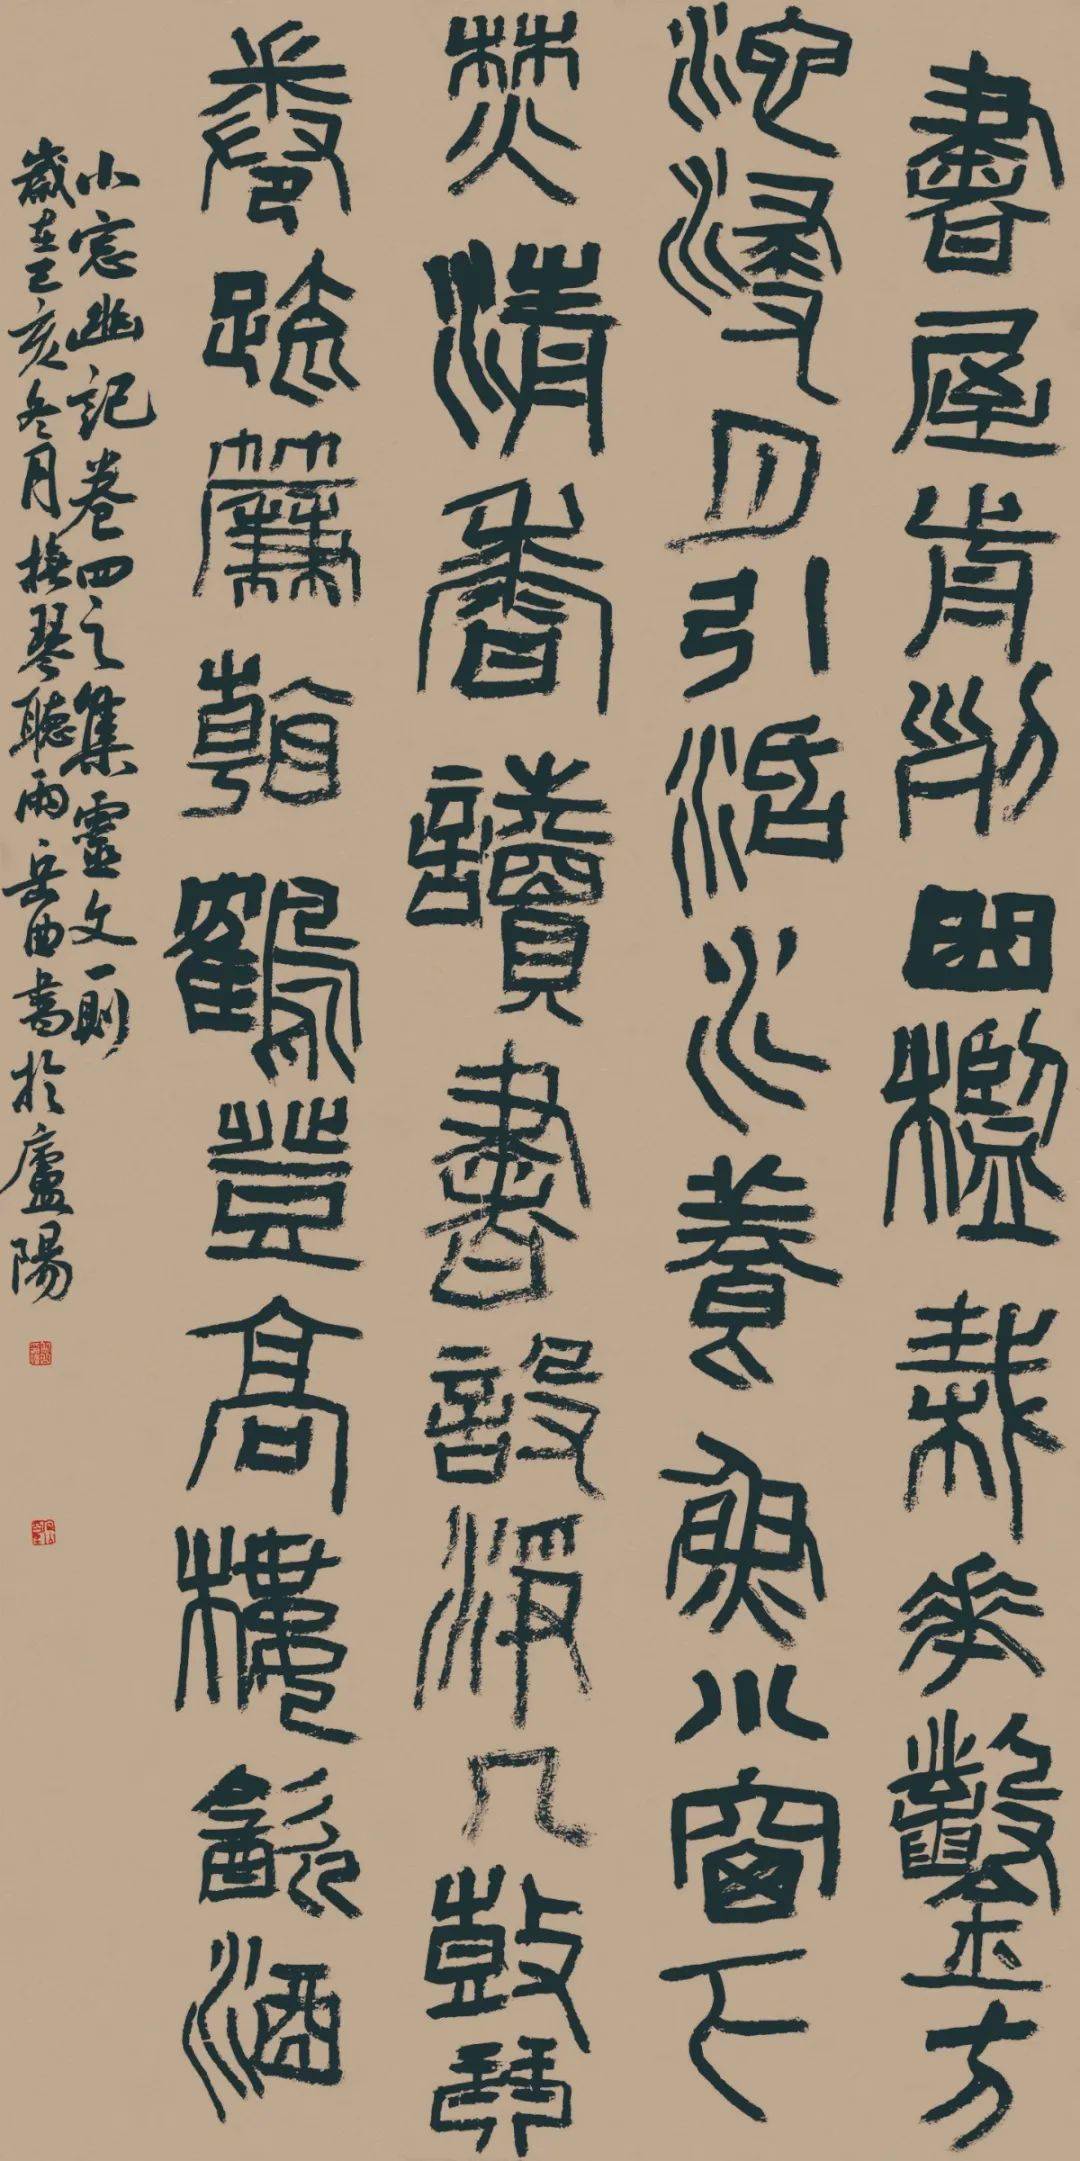 書屋前列曲檻栽花鑿方
池浸月引活水養魚小窗下
焚清香讀書設淨几鼓琴
卷疏簾看鶴登高樓飲酒
小窓幽記卷四之集靈文一則
歲在己亥冬月撫琴聽雨岳書於廬陽